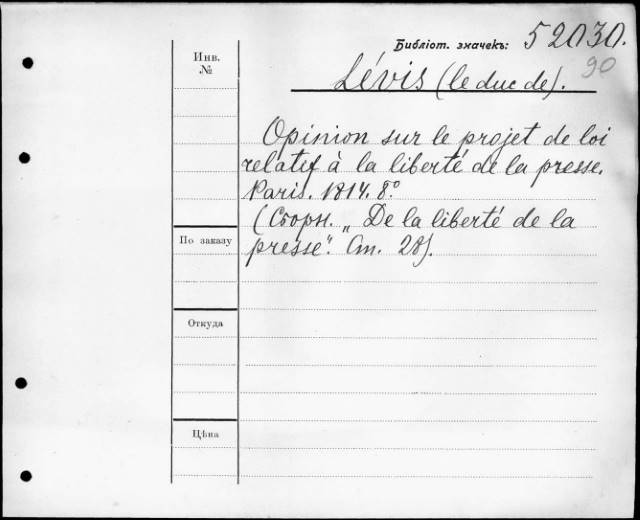 Библіот. значекъ: 52030.
90
Инв.
№
Lévis (le duc de).
Opinion sur le projet de loi
relatif à la liberté de la presse.
Paris. 1814. 8°
(Сборн. „De la liberté de la
presse“. Ст. 28).
По заказу
Откуда
Цѣна